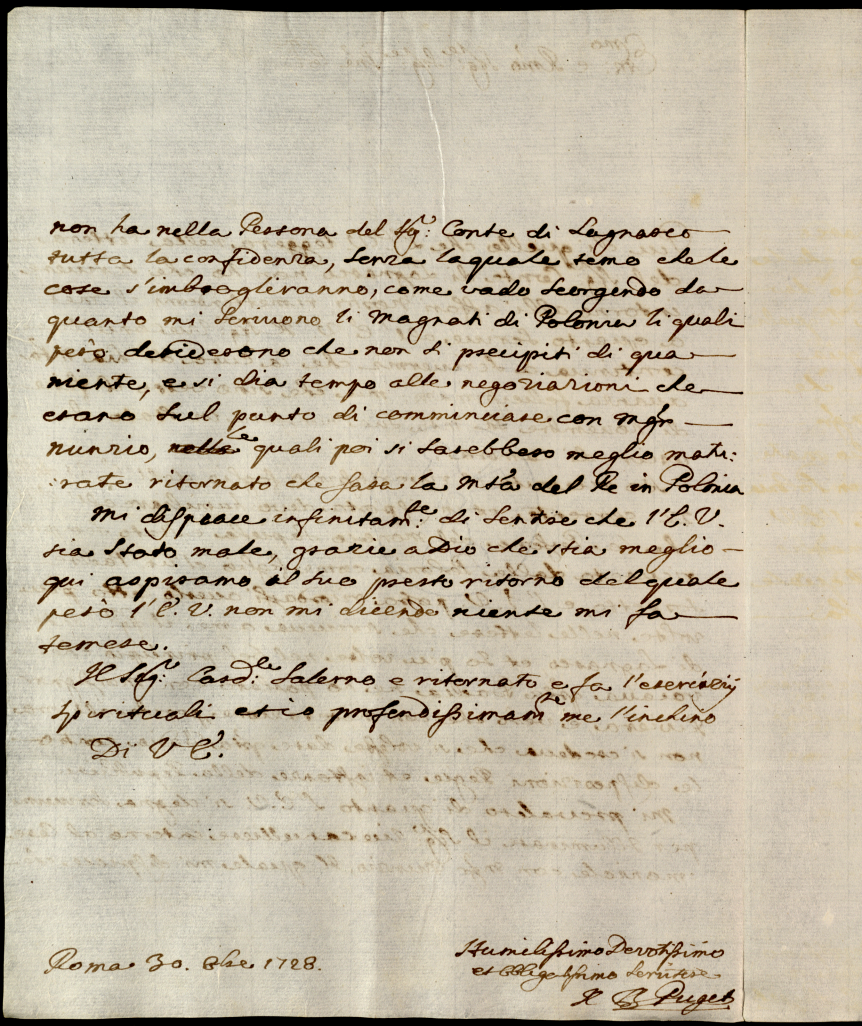 non ha nella Persona del Sig.r Conte di Lagnasco
tutta la confidenza, senza laquale temo che le
cose s'imbroglieranno, come vado scorgendo da
quanto mi scrivono li Magnati di Polonia li quali
però desiderono che non si precipiti di qua
niente, e si dia tempo alle negoziazioni che
erano sul punto di comminciare con Mgr
nunzio, le quali poi si sarebbero meglio matu:
rate ritornato che sara la Mtà del Re in Polonia
Mi dispiace infinitam:te di sentire che l'E. V.
sia stato male, grazie a Dio che stia meglio
qui aspiramo il suo presto ritorno del quale
però l'E. V. non mi dicendo niente mi fa
temere.
Il Sig:r Card:le Salerno e ritornato e fa l'esercizij
spirituali et io profondissimam:te me l'inchino
Di V E.
Roma 30. 8bre 1728.
Humilissimo Devotissimo
et obligatissimo Servitore
Il B Puget